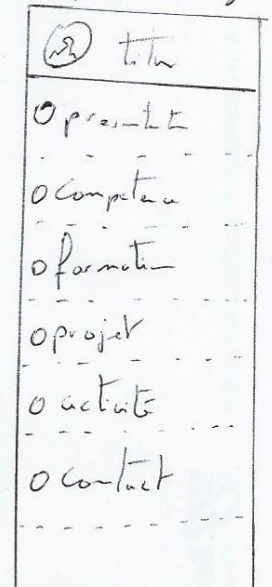 titre
présentat
competence
formation
projet
activité
contact